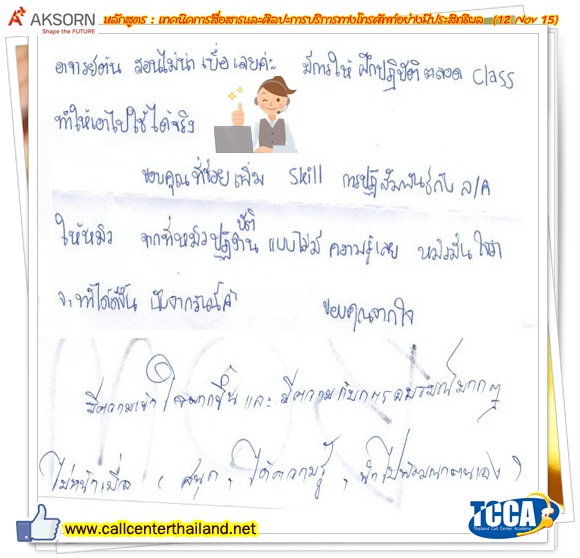 AKSORN
Shape the FUTURE
หลักสูตร : เทคนิคการสื่อสารและศิลปะการบริการทางโทรศัพท์อย่างมีประสิทธิผล (12 Nov 15)
อาจารย์ต้น สอนไม่น่าเบื่อเลยค่ะ มีการให้ฝึกปฏิบัติตลอด class
ทำให้เอาไปใช้ได้จริง
ขอบคุณที่ช่วยเพิ่ม skill การปฏิสัมพันธ์กับ ล/ค
ให้หมิว จากที่หมิวปฏิบัติงาน แบบไม่มีความรู้เลย หมิวมั่นใจว่า
จะทำได้ดีขึ้น นับจากวันนี้ค่ะ ขอบคุณจากใจ
มีความเข้าใจมากขึ้นและมีความ
ไม่น่าเบื่อ (สนุก, ได้ความรู้, นำไปพัฒนาตนเอง)
www.callcenterthailand.net
TCCA
Thailand Call Center Academy